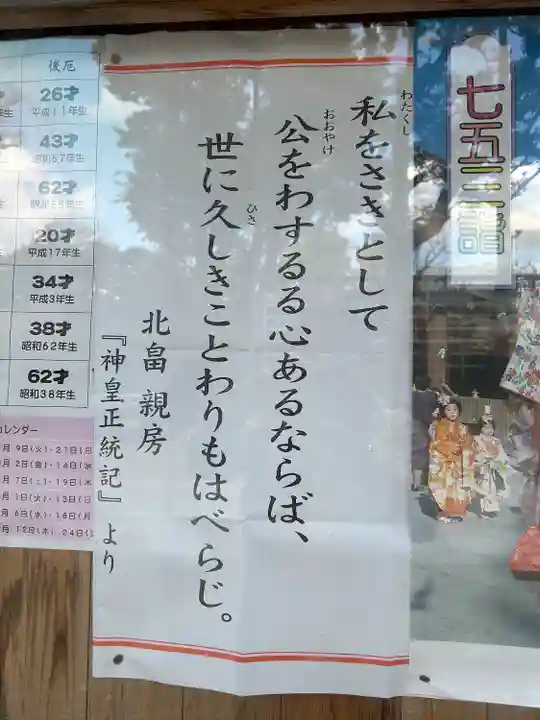 七五三詣
わたくし
私をさきとして
おおやけ
公をわするる心あるならば、
ひさ
世に久しきことわりもはべらじ。
北畠 親房
『神皇正統記』 より
後厄
26才
平成11年生
43才
62才
20才
平成17年生
34才
平成3年生
38才
昭和62年生
62才
昭和38年生
カレンダー
月 9日(火)・21日(日
月 2日(金)・14日(水
月 7日(土)・19日(木
月 1日(火)・13日(日
月 6日(水)・18日(月
月 12日(木)・24日(